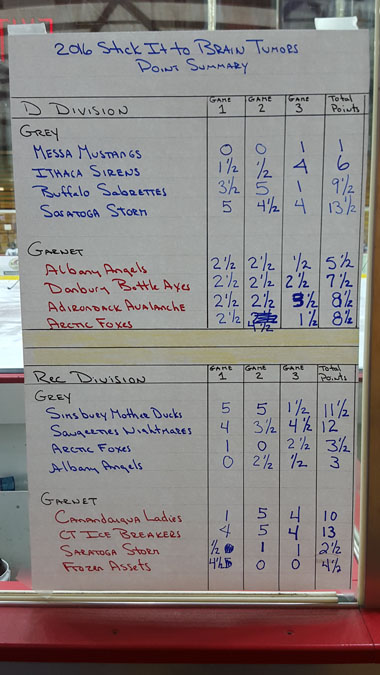 2016 Stick It to Brain Tumors
Point Summary
D Division Game 1 Game 2 Game 3 Total Points
Grey
Messa Mustangs 0 0 1 1
Ithaca Sirens 1½ ½ 4 6
Buffalo Sabrettes 3½ 5 1 9½
Saratoga Storm 5 4½ 4 13½
Garnet
Albany Angels 2½ 2½ ½ 5½
Danbury Battle Axes 2½ 2½ 2½ 7½
Adirondack Avalanche 2½ 2½ 3½ 8½
Arctic Foxes 2½ 4½ 1½ 8½
Rec Division Game 1 Game 2 Game 3 Total Points
Grey
Simsbury Mother Ducks 5 5 1½ 11½
Saugerties Nightmares 4 3½ 4½ 12
Arctic Foxes 1 0 2½ 3½
Albany Angels 0 2½ ½ 3
Garnet
Canandaigua Ladies 1 5 4 10
CT Ice Breakers 4 5 4 13
Saratoga Storm ½ 1 1 2½
Frozen Assets 4½ 0 0 4½